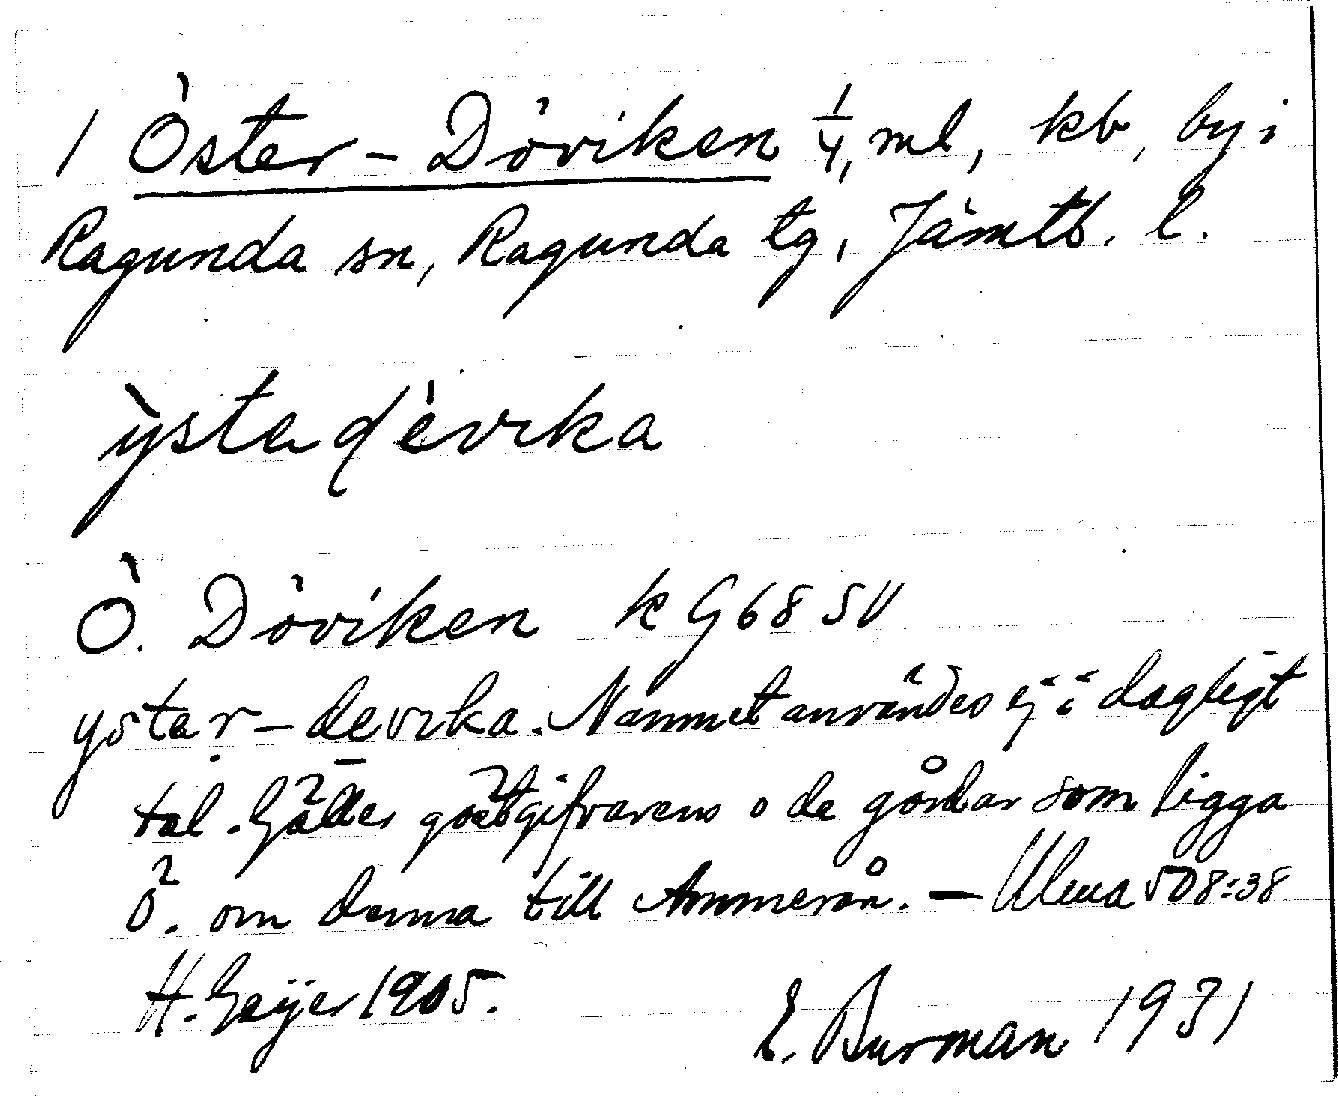 1 Öster-Döviken 1/4, ml, kb, by i
Ragunda sn, Ragunda tg, Jämtl. l.
ystadevika
Ö. Döviken k G 68 SV
yster-devika. Namnet användes ej i dagligt
tal. Gäller gästgifvarens o de gårdar som ligga
ö. om denna till Ammerån. — Ulma 508:38
H. Geijer 1905.
E. Burman 1931